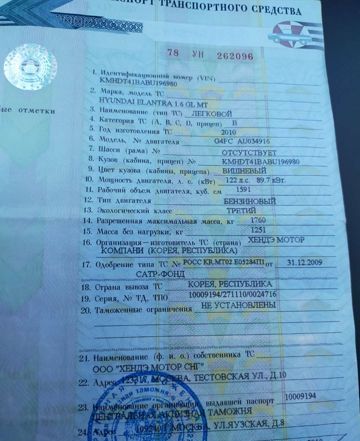 ПАСПОРТ ТРАНСПОРТНОГО СРЕДСТВА
78 УН 262096
1. Идентификационный номер (VIN)
KMHDT41BABU196980
2. Марка, модель ТС
HYUNDAI ELANTRA 1.6 GL MT
3. Наименование (тип ТС) ЛЕГКОВОЙ
4. Категория ТС (А, В, С, D, прицеп) В
5. Год изготовления ТС 2010
6. Модель, № двигателя G4FC AU034916
7. Шасси (рама) № ОТСУТСТВУЕТ
8. Кузов (кабина, прицеп) № KMHDT41BABU196980
9. Цвет кузова (кабины, прицепа) ВИШНЕВЫЙ
10. Мощность двигателя, л. с. (кВт) 122 л.с. 89.7 кВт
11. Рабочий объем двигателя, куб. см 1591
12. Тип двигателя БЕНЗИНОВЫЙ
13. Экологический класс ТРЕТИЙ
14. Разрешенная максимальная масса, кг 1760
15. Масса без нагрузки, кг 1251
16. Организация—изготовитель ТС (страна) ХЕНДЭ МОТОР
КОМПАНИ (КОРЕЯ, РЕСПУБЛИКА)
17. Одобрение типа ТС № РОСС KR.МТ02.Е05284П1 от 31.12.2009
САТР-ФОНД
18. Страна вывоза ТС КОРЕЯ, РЕСПУБЛИКА
19. Серия, № ТД, ТПО 10009194/271110/0024716
20. Таможенные ограничения НЕ УСТАНОВЛЕНЫ
ые отметки
21. Наименование (ф. и. о.) собственника ТС
ООО "ХЕНДЭ МОТОР СНГ"
22. Адрес МОСКВА, ТЕСТОВСКАЯ УЛ., Д.10
23. Наименование организации, выдавшей паспорт 10009194
ЦЕНТРАЛЬНАЯ АКЦИЗНАЯ ТАМОЖНЯ
24. Адрес УЛ.ЯУЗСКАЯ, Д.8